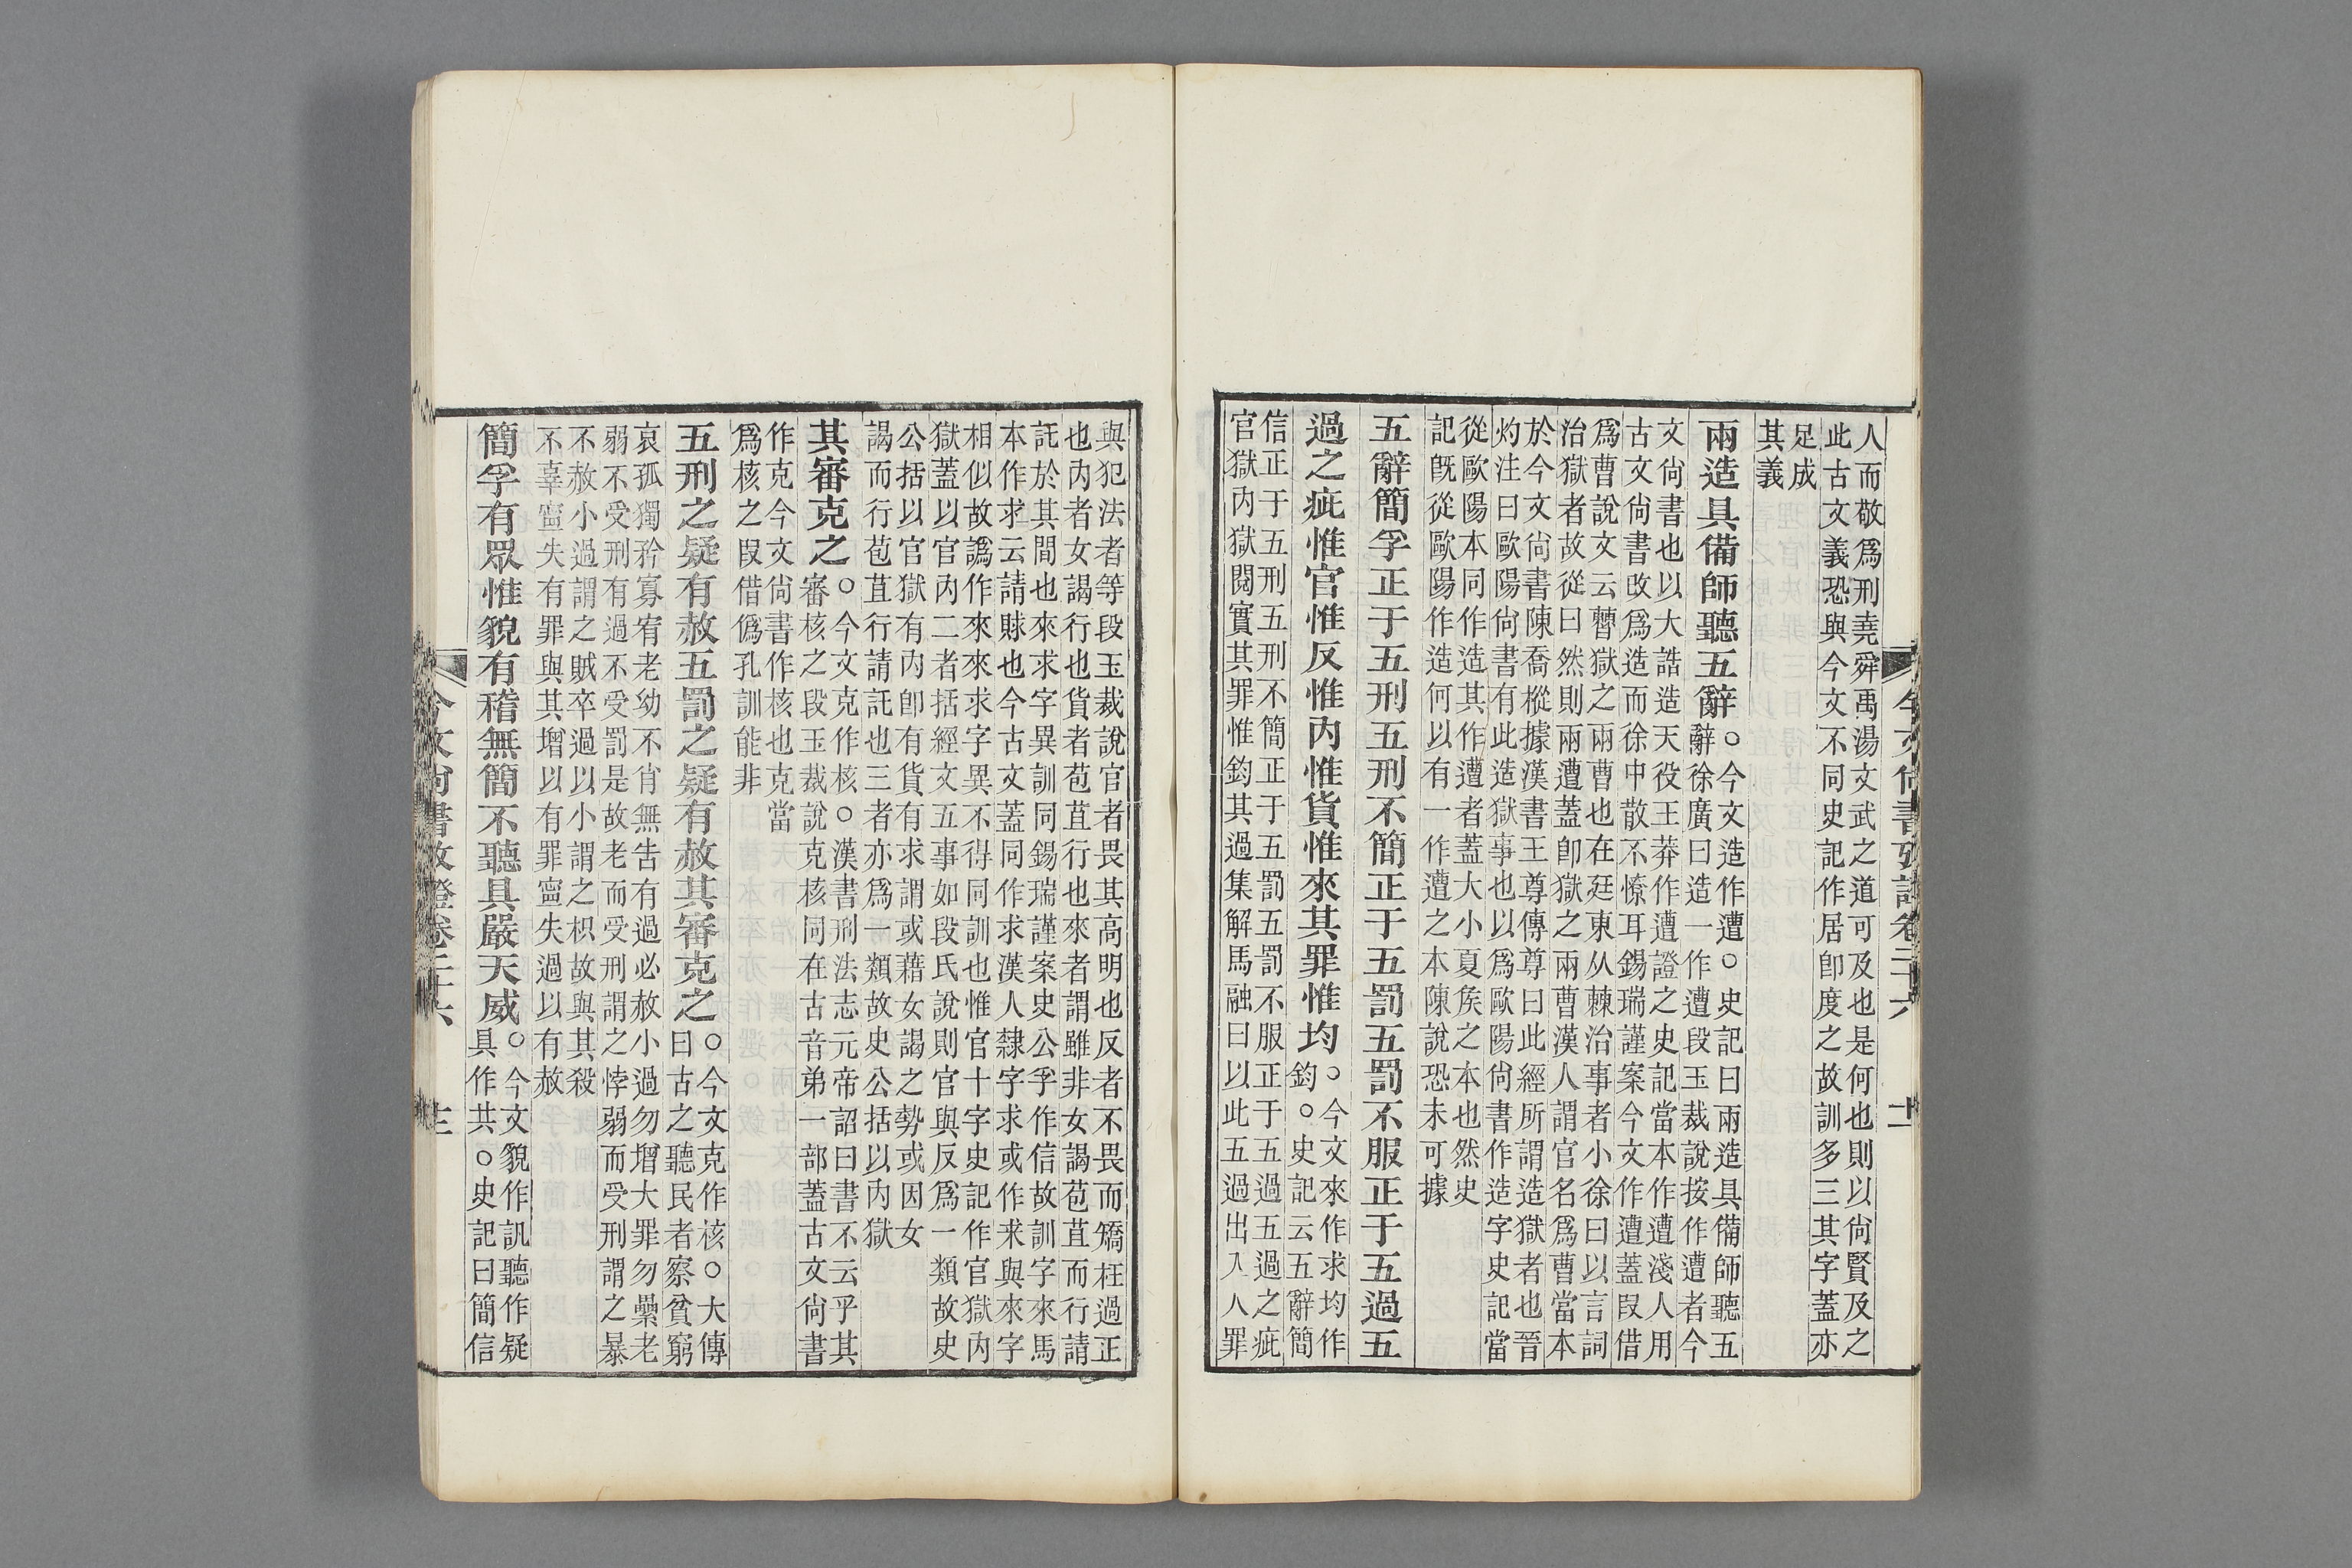 人而敬爲刑堯舜禹湯文武之道可及也是何也則以尙賢及之
此古文義恐與今文不同史記作居卽度之故訓多三其字蓋亦
足成
其義
兩造具備師聽五辭○今文造作遭○史記曰兩造具備師聽五
辭徐廣曰造一作遭段玉裁說按作遭者今
文尙書也以大誥造天役王莽作遭證之史記當本作遭淺人用
古文尙書改爲造而徐中散不憭耳錫瑞謹案今文作遭蓋叚借
爲曹說文云㯥獄之兩曹也在廷東从棘治事者小徐曰以言詞
治獄者故從曰然則兩遭蓋卽獄之兩曹漢人謂官名爲曹當本
於今文尙書陳喬樅據漢書王尊傳尊曰此經所謂造獄者也晉
灼注曰歐陽尙書有此造獄事也以爲歐陽尙書作造字史記當
從歐陽本同作造其作遭者蓋大小夏矦之本也然史
記旣從歐陽作造何以有一作遭之本陳說恐未可據
五辭簡孚正于五刑五刑不簡正于五罰五罰不服正于五過五
過之疵惟官惟反惟內惟貨惟來其罪惟均○今文來作求均作
鈞○史記云五辭簡
信正于五刑五刑不簡正于五罰五罰不服正于五過五過之疵
官獄內獄閱實其罪惟鈞其過集解馬融曰以此五過出入人罪
今文尙書攷證卷二十六
與犯法者等段玉裁說官者畏其高明也反者不畏而矯枉過正
也內者女謁行也貨者苞苴行也來者謂雖非女謁苞苴而行請
託於其間也來求字異訓同錫瑞謹案史公孚作信故訓字來馬
本作求云請賕也今古文蓋同作求漢人隸字求或作來與來字
相似故譌作來來求字異不得同訓也惟官十字史記作官獄內
獄蓋以官內二者括經文五事如段氏說則官與反爲一類故史
公括以官獄有內卽有貨有求謂或藉女謁之勢或因女
謁而行苞苴行請託也三者亦爲一類故史公括以內獄
其審克之○今文克作核○漢書刑法志元帝詔曰書不云乎其
審核之段玉裁說克核同在古音弟一部蓋古文尙書
作克今文尙書作核也克當
爲核之叚借僞孔訓能非
五刑之疑有赦五罰之疑有赦其審克之○今文克作核○大傳
曰古之聽民者察貧窮
哀孤獨矜寡宥老幼不肖無告有過必赦小過勿增大罪勿纍老
弱不受刑有過不受罰是故老而受刑謂之悖弱而受刑謂之暴
不赦小過謂之賊卒過以小謂之枳故與其殺
不辜寍失有罪與其增以有罪寍失過以有赦
簡孚有眾惟貌有稽無簡不聽具嚴天威○今文貌作訊聽作疑
具作共○史記曰簡信
今文尙書攷證卷二十六